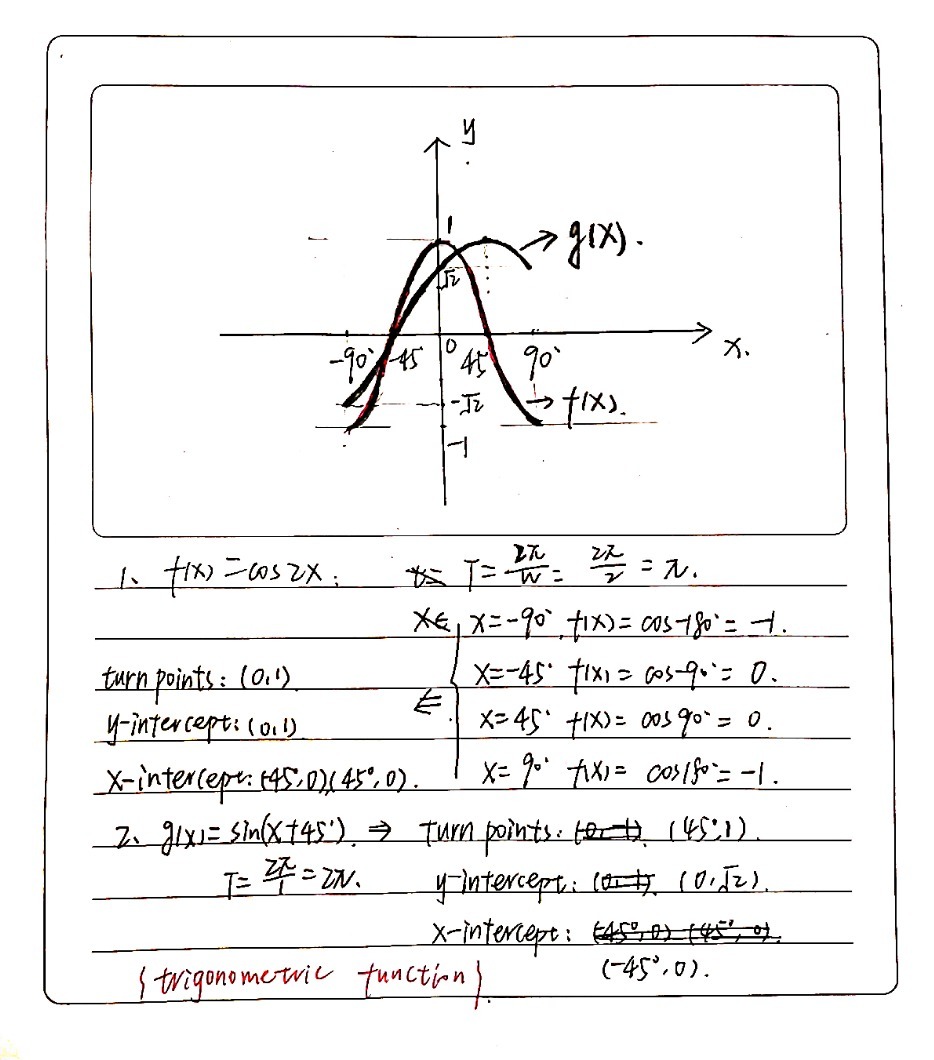 y
1
g(x).
√2
-90° -45 0 45° 90° x.
-√2
f(x).
-1
1、 f(x) = cos2x. T = 2π/W = 2π/2 = π.
x∈ x=-90° f(x) = cos-180° = -1.
turn points: (0,1) x=-45° f(x) = cos-90° = 0.
y-intercept: (0,1) ⇐ x=45° f(x) = cos90° = 0.
x-intercept: (-45°,0)(45°,0). x=90° f(x) = cos180° = -1.
2、 g(x) = sin(x+45°) ⇒ turn points: (0,-1) (45°,1).
T = 2π/1 = 2π. y-intercept: (0,-1) (0,√2).
x-intercept: (-45°,0) (45°,0).
(-45°,0).
{trigonometric function}.